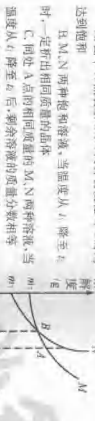 达到饱和
B. M、N 两种饱和溶液，当温度从 t₁ 降至 t₂
时，一定析出相同质量的晶体
C. 同处 A 点的相同质量的 M、N 两种溶液，当
温度从 t₁ 降至 t₂ 后，剩余溶液的质量分数相等
度
/g
M
B
A
m₁
m₂